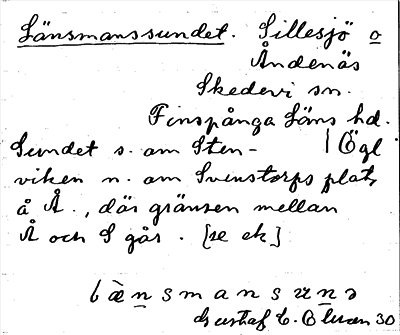 Länsmanssundet. Sillesjö o
Åndenäs
Skedevi sn.
Finspånga Läns hd.
Sundet s. om Sten- | Ögl
viken n. om Svenstorps plats,
å Å., där gränsen mellan
Å och S går. [se ek]
lènsmansɛnə
Gustaf E. Olsson 30